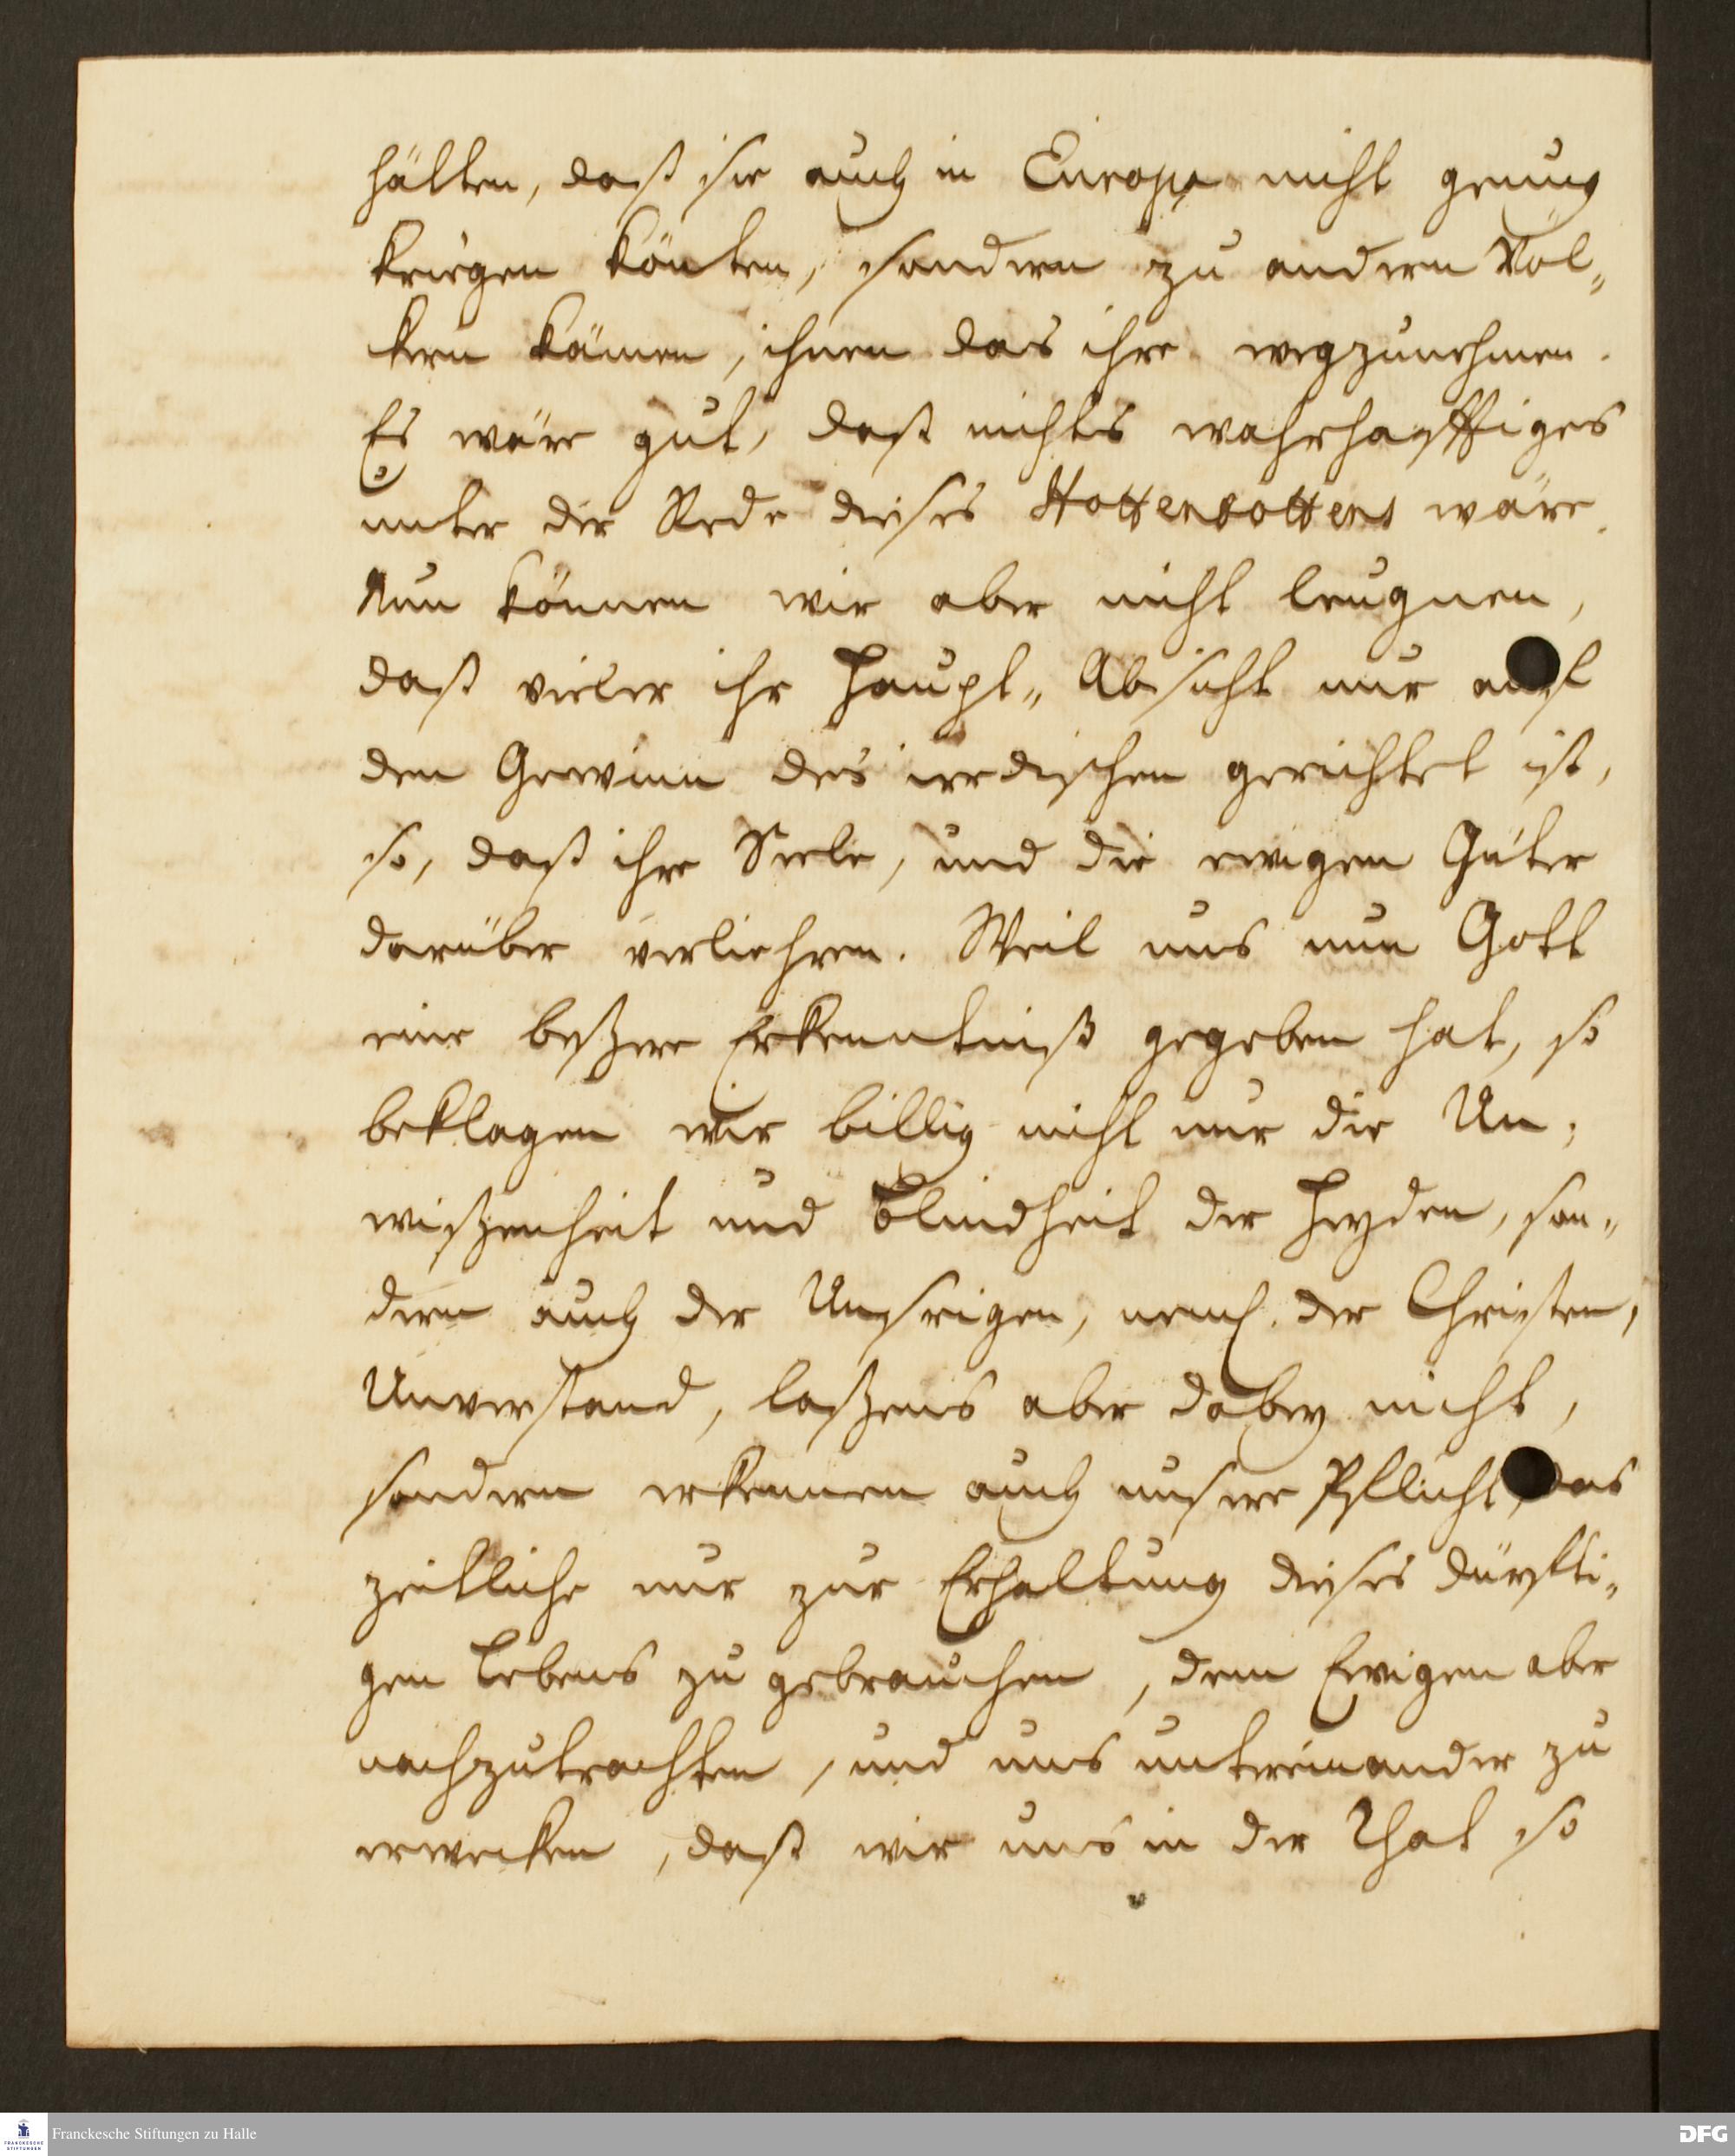 hätten, daß sie auch in Europa nicht genung
kriegen könten, sondern zu andern Völ„
kern kämen, ihnen das ihre wegzunehmen.
Es wäre gut, daß nichts wahrhafftiges
unter der Rede dieses Hottentottens wäre.
Nun können wir aber nicht leugnen,
daß vieler ihr Haupt„ Absicht nur auf
den Gewinn des irrdischen gerichtet ist,
so, daß ihre Seele, und die ewigen Güter
darüber verliehren. Weil uns nun Gott
eine beßere Erkenntniß gegeben hat, so
beklagen wir billig nicht nur die Un„
wißenheit und Blindheit der Heyden, son„
dern auch der Unsrigen, neml. der Christen,
Unverstand, laßens aber dabey nicht,
sondern erkennen auch unsere Pflicht, das
zeitliche nur zur Erhaltung dieses dürffti„
gen Lebens zu gebrauchen, dem Ewigen aber
nachzutrachten, und uns untereinander zu
erwecken, daß wir uns in der That so
Franckesche Stiftungen zu Halle
FRANCKESCHE
STIFTUNGEN
DFG